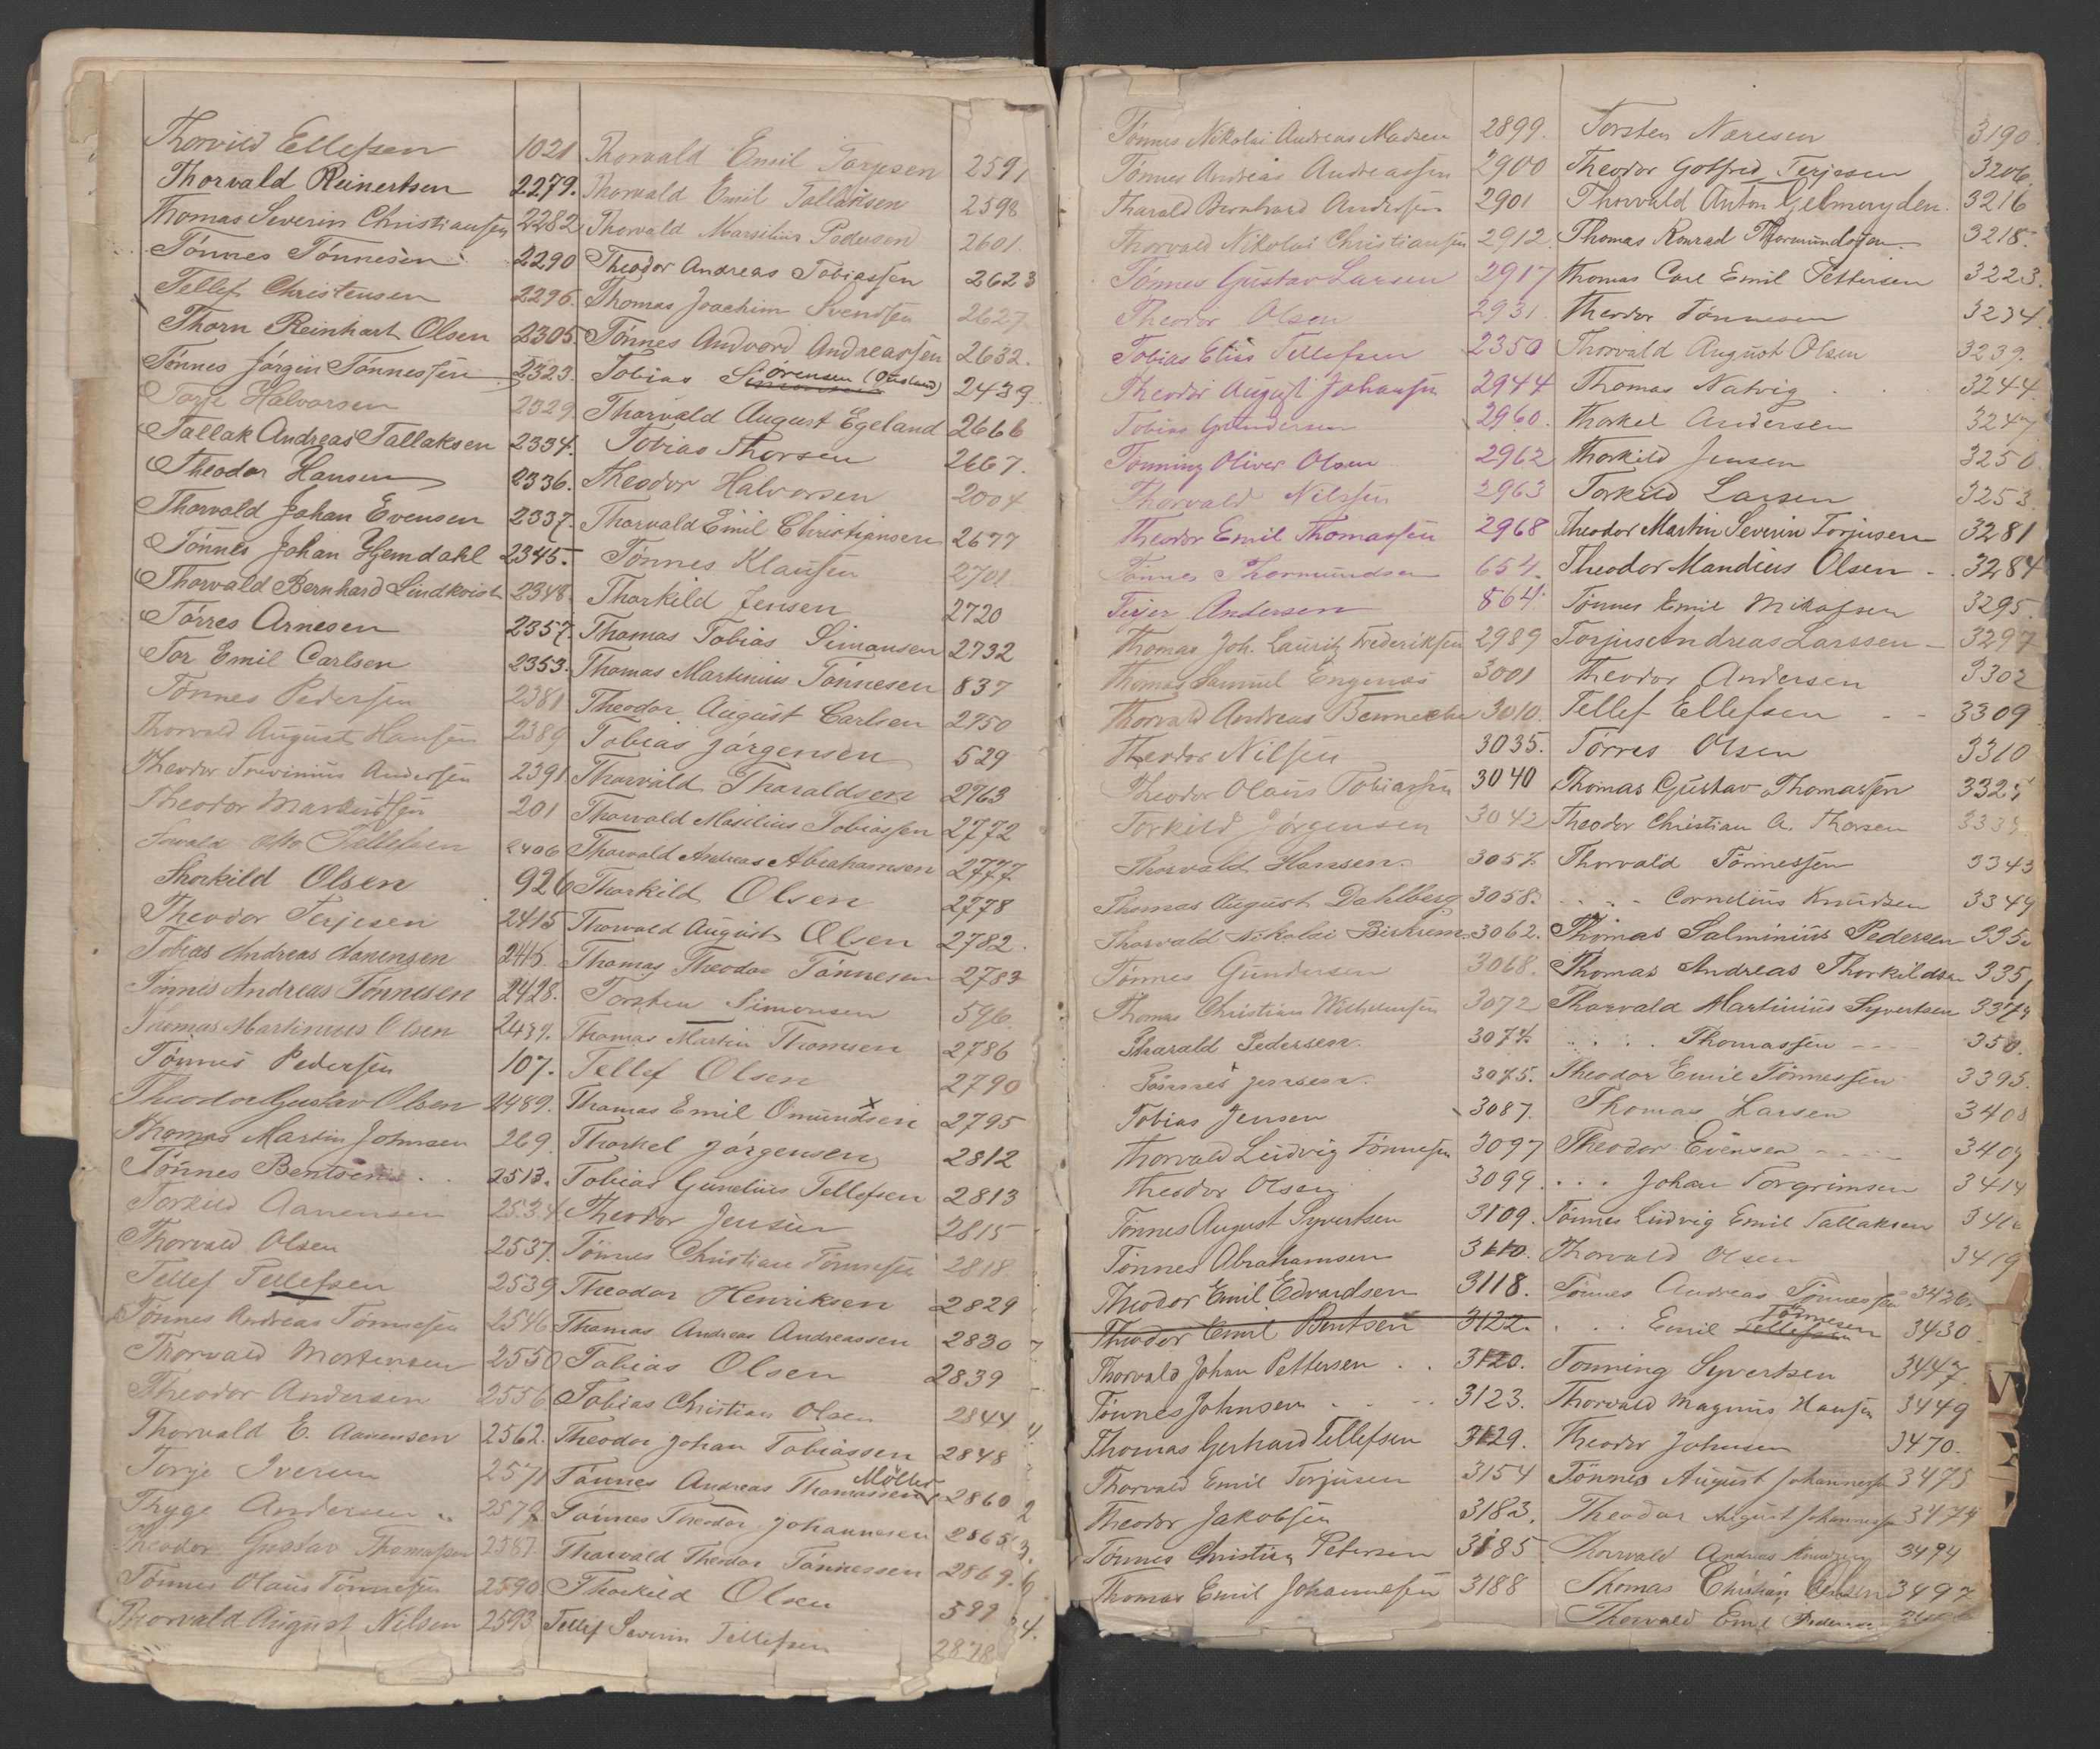 Thorvild Ellefsen 1021
Thorvald Reinertsen 2279.
Thomas Severin Christiansen 2282
Tönnes Tönnesen 2290
Tellef Christensen 2296.
Thorn Reinhart Olsen 2305.
Tönnes Jörgin Tönnessen 2323.
Tarje Halvorsen 2329
Tallak Andreas Tallaksen 2334.
Theodor Hansen 2336.
Thorvald Johan Evensen 2337.
Tönnes Johan Hjemdahl 2345.
Thorvald Bernhard Lindkvist 2348.
Törres Arnesen 2357.
Tor Emil Carlsen 2353.
Tönnes Pedersen 2381
Thorvald August Hansen 2389
Theodor Andersen 2391
Theodor 201
Otto Tellefsen 2406
Thorkild Olsen 926
Theodor Terjesen 2415
Tobias Andreas Aanensen 2416.
Tönnes Andreas Tönnesen 2428.
Thomas Martinius Olsen
Tönnes Pedersen 107.
Theodor Gustav Olsen 2489.
Thomas Martin Johnsen 269.
Tönnes Bentsen 2513.
Torkild Aanensen 2534
Thorvald Olsen 2537.
Tellef Tellefsen 2539
Tönnes Andreas Tönnesen 2546
Thorvald Mortensen 2550
Theodor Andersen 2556
Thorvald E. Aanensen 2562.
Torje Iversen 2571
Thyge Andersen
Theodor Gustav Thomassen 2587.
Tönnes Olaus Tönnesen 2590
Thorvald August Nilsen 2593
Thorvald Emil Torjesen 2591
Thorvald Emil Tallaksen 2598
Thorvald Marsilius Pedersen 2601.
Theodor Andreas Tobiassen 2623
Thomas Joachim Svendsen 2627
Tönnes Andvord Andreassen 2632.
Tobias Sörensen 2439
Thorvald August Egeland 2666
Tobias Thorsen 2667.
Theodor Halvorsen 2004
Thorvald Emil Christiansen 2677
Tönnes Klausen 2701
Thorkild Jensen 2720
Thomas Tobias Simonsen 2732
Thomas Martinius Tönnesen 837
Theodor August Carlsen 2750
Tobias Jörgensen 529
Thorvald Tharaldsen 2763
Thorvald Masilius Tobiassen 2772
Thorvald Andreas Abrahamsen 2777
Thorkild Olsen 2778
Thorvald August Olsen 2782.
Thomas Theodor Tönnesen 2783
Torsten Simonsen 596
Thomas Martin Thomsen 2786
Tellef Olsen 2790
Thomas Emil Omundsen 2795
Thorkel Jörgensen 2812
Tobias Gunelius Tellefsen 2813
Theodor Jensen 2815
Tönnes Christian Tönnesen 2818.
Theodor Henriksen 2829
Thomas Andreas Andreassen 2830
Tobias Olsen 2839
Tobias Christian Olsen 2844
Theodor Johan Tobiassen 2848
Möller
Tönnes Andreas Thomassen 2860
Tönnes Theodor Johannesen 2865
Thorvald Theodor Tönnessen 2869.
Thorkild Olsen 599
Tellef Severin Tellefsen 2878
Tönnes Nikolai Andreas Madsen 2899.
Tönnes Andreas Andreassen 2900
Tharald Bernhard Andersen 2901
Thorvald Nikolai Christiansen 2912.
Tönnes Gustav Larsen 2917
Theodor Olsen 2931
Tobias Elias Tellefsen 2350
Theodor August Johansen 2944
Tobias Gundersen 2960.
Tönning Oliver Olsen 2962
Thorvald Nilssen 2963
Theodor Emil Thomassen 2968
Tönnes Thormundsen 654.
Terjer Andersen 864.
Thomas Joh. Lauritz Frederiksen 2989
Thomas Samuel Engenæs 3001
Thorvald Andreas Bennecke 3010.
Theodor Nilsen 3035.
Theodor Olaus Tobiassen 3040
Torkild Jörgensen 3042
Thorvald Hansen. 3057.
Thomas August Dahlberg 3058.
Thorvald Nikolai Birkrem 3062.
Tönnes Gundersen 3068.
Thomas Christian Wilhelmsen 3072
Tharald Pedersen. 3074.
Tönnes Jensen. 3075.
Tobias Jensen 3087.
Thorvald Ludvig Tönnesen 3097
Theodor Olsen 3099.
Tönnes August Syvertsen 3109.
Tönnes Abrahamsen 3110.
Theodor Emil Edvardsen 3118.
Theodor Emil Bentsen 3122.
Thorvald Johan Pettersen . . 3120.
Tönnes Johnsen . - . - 3123.
Thomas Gerhard Tellefsen 3129.
Thorvald Emil Torjusen 3154
Theodor Jakobsen 3183.
Tönnes Christian Petersen 3185
Thomas Emil Johannesen 3188
Torsten Næresen 3190
Theodor Gotfred Terjesen 3206.
Thorvald Anton Gelmuyden. 3216
Thomas Konrad Thormundsen. 3218.
Thomas Carl Emil Pettersen 3223.
Theodor Tönnesen 3234.
Thorvald August Olsen 3239.
Thomas Natvig 3244.
Thorkel Andersen 3247
Thorkild Jensen 3250
Torkild Larsen 3253.
Theodor Martin Severin Torjusen 3281
Theodor Mandius Olsen - 3284
Tönnes Emil Mikalsen 3295.
Torjus Andreas Larssen - 3297
Theodor Andersen 3302
Tellef Ellefsen - - 3309
Törres Olsen 3310
Thomas Gustav Thomassen
Theodor Christian A. Thorsen
Thorvald Tönnessen 3343
. . . Cornelius Knudsen 3349
Thomas Salminius Pedersen
Thomas Andreas Thorkildsen 3351
Thorvald Martinius Syvertsen
. . . . Thomassen - - -
Theodor Emil Tönnessen 3395.
Thomas Larsen 3408
Theodor Evensen - - - - - 3409
. . . Johan Torgrimsen 3414
Tönnes Ludvig Emil Tallaksen
Thorvald Olsen 3419
Tönnes Andreas Tönnessen 3426.
Tönnesen
. . . Emil Tellefsen 3430
Tonning Syvertsen 3447.
Thorvald Magnus Hansen 3449
Theodor Johnsen 3470.
Tönnes August Johannessen 3475
Theodor August Johannessen
Thorvald Andreas 3494
Thomas Christian Olsen 3497
Thorvald Emil Pedersen